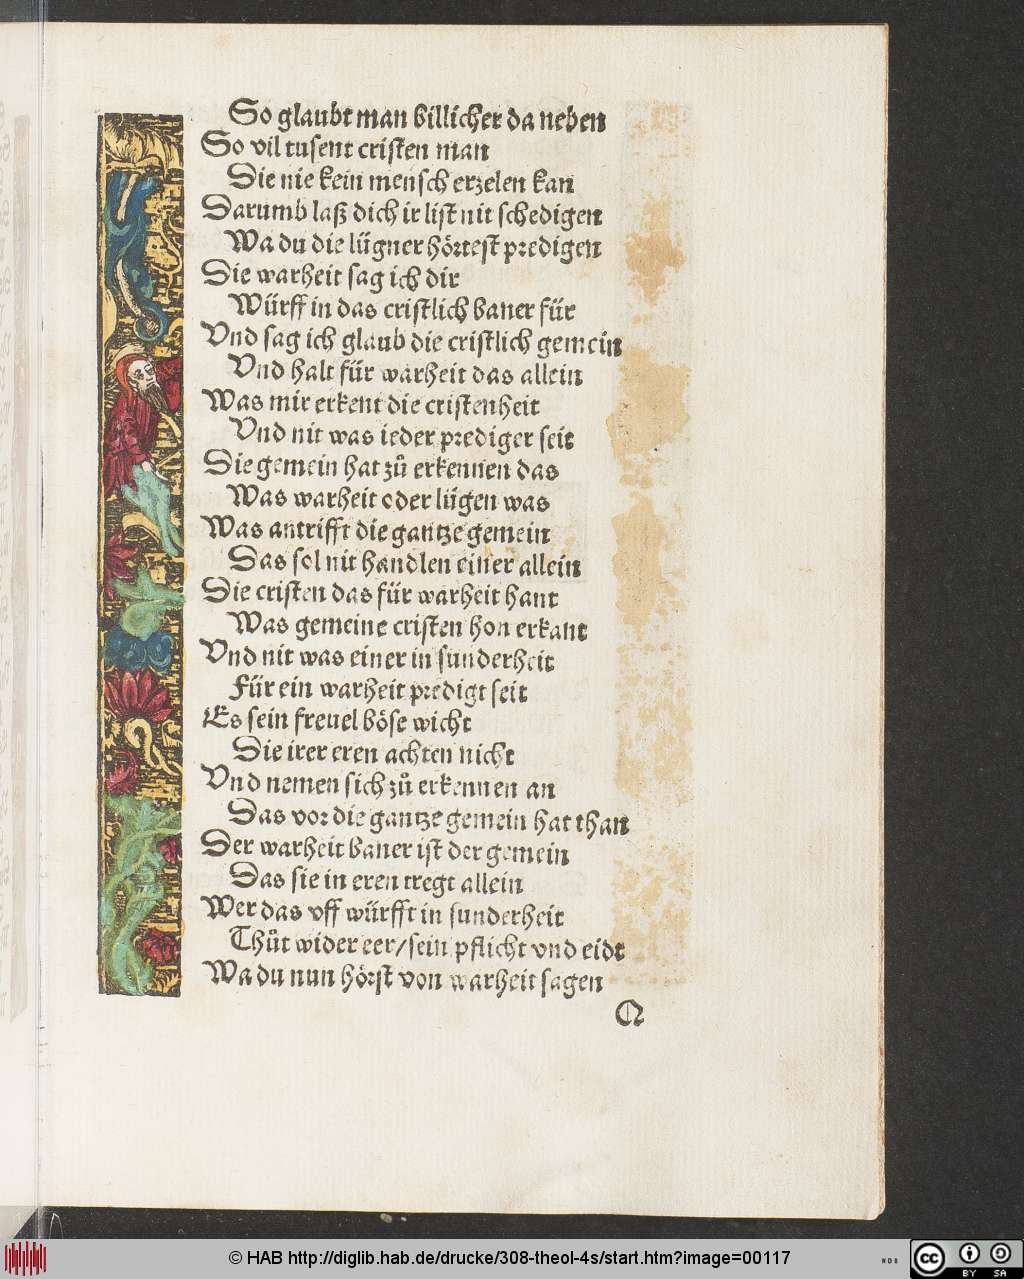 So glaubt man billicher da neben
So vil tusent cristen man
Die nie kein mensch erzelen kan
Darumb laß dich ir list nit schedigen
Wa du die lügner hörtest predigen
Die warheit sag ich dir
Würff in das cristlich baner für
Vnd sag ich glaub die cristlich gemein
Vnd halt für warheit das allein
Was mir erkent die cristenheit
Vnd nit was ieder prediger seit
Die gemein hat zů erkennen das
Was warheit oder lügen was
Was antrifft die gantze gemein
Das sol nit handlen einer allein
Die cristen das für warheit hant
Was gemeine cristen hon erkant
Vnd nit was einer in sunderheit
Für ein warheit predigt seit
Es sein freuel böse wicht
Die irer eren achten nicht
Vnd nemen sich zů erkennen an
Das vor die gantze gemein hat than
Der warheit baner ist der gemein
Das sie in eren tregt allein
Wer das vff würfft in sunderheit
Thůt wider eer/sein pflicht vnd eidt
Wa du nun hörst von warheit sagen
Q
© HAB http://diglib.hab.de/drucke/308-theol-4s/start.htm?image=00117
cc BY SA